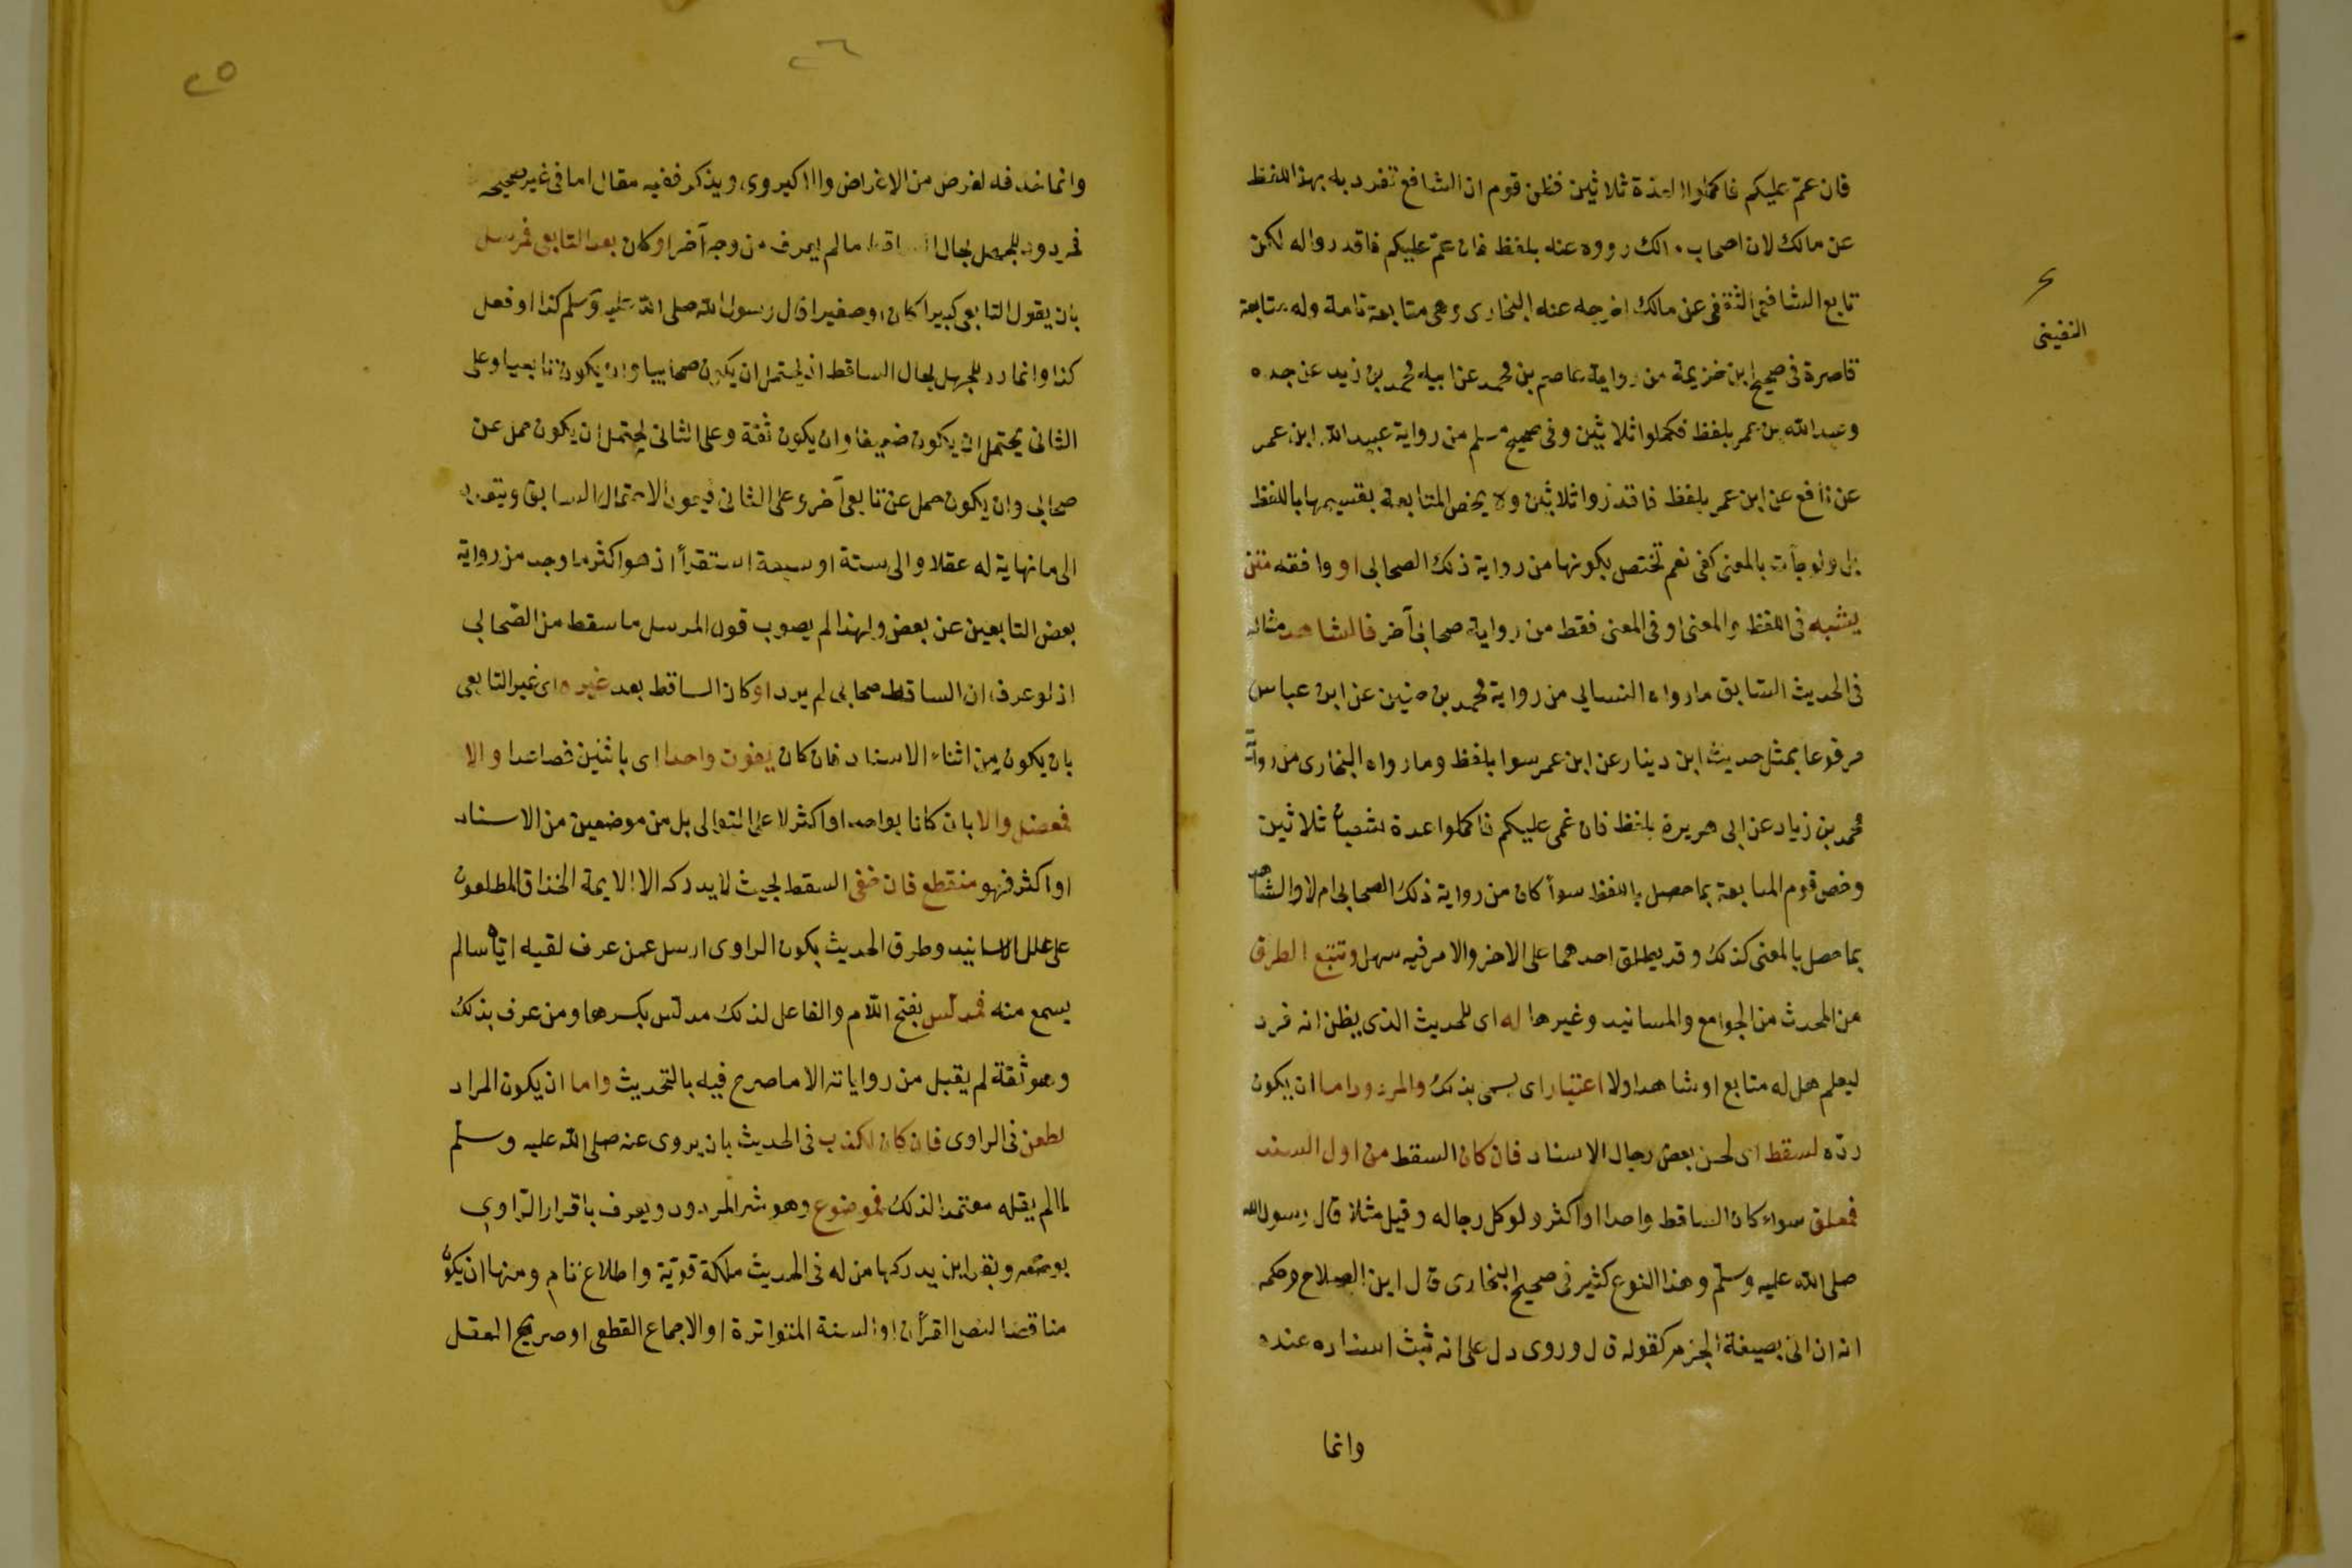 فان غمّ عليكم فاكملوا العدة ثلاثين فظن قوم ان الشافع تفرد به بهذا اللفظ
عن مالك لان اصحاب مالك رووه عنه بلفظ فان غمّ عليكم فاقدرواله لكن
تابع الشافعى القعنبى عن مالك اخرجه عنه البخارى وهى متابعة تامة وله متابعة
قاصرة فى صحيح ابن خزيمة من رواية عاصم بن محمد عن ابيه محمد بن زيد عن جده
وعبد الله بن عمر بلفظ فكملوا ثلاثين وفى صحيح مسلم من رواية عبيد الله ابن عمر
عن نافع عن ابن عمر بلفظ فاقدروا ثلاثين ولا يخص المتابعة بقسيمها باللفظ
بل ولو جأت بالمعنى كفى نعم تختص بكونها من رواية ذلك الصحابى او وافقه متن
يشبه فى اللفظ والمعنى او فى المعنى فقط من رواية صحابى آخر فالشاهد مثاله
فى الحديث السّابق مارواه النسايى من رواية محمد بن حنين عن ابن عباس
مرفوعا بمثل حديث ابن دينار عن ابن عمر سوا بلفظ ومارواه البخارى من رواية
محمد بن زياد عن ابى هريرة بلفظ فان غمى عليكم فاكملوا عدة شعبان ثلاثين
وخص قوم المتابعة بما حصل باللفظ سوأ كان من رواية ذلك الصحابى ام لا والشاهد
بما حصل بالمعنى كذلك وقد يطلق احدهما على الاخر والامر فيه سهل وتتبع الطرق
من المحدث من الجوامع والمسانيد وغيرها له اى للحديث الذى يظن انه فرد
ليعلم هل له متابع او شاهد اولا اعتبار اى يسمى بذلك والمردود اما ان يكون
ردّه لسقط اى بعض رجال الاسناد فان كان السقط من اول السند
فمعلق سواء كان الساقط واحدا او اكثر ولو كل رجاله وقيل مثلا قال رسول الله
صلى الله عليه وسلّم وهذا النوع كثير فى صحيح البخارى قال ابن الصلاح وحكمه
انه ان اتى بصيغة الجزم كقوله قال وروى دل على انه ثبت اسناده عنده
وانما
القعنبى
٢٦
٢٥
وانما حذفه لغرض من الاغراض والا كيروى ويذكر ففيه مقال اما فى غير صحيحه
فمردود للجهل بحال الساقط مالم يعرف من وجه آخر او كان بعد التابعى فمرسل
بان يقول التابعى كبيرا كان او صغيرا قال رسول الله صلى الله عليه وسلم كذا او فعل
كذا وانما رد للجهل بحال الساقط اذ يحتمل ان يكون صحابيا وان يكون تابعيا وعلى
الثانى يحتمل ان يكون ضعيفا وان يكون ثقة وعلى الثانى يحتمل ان يكون حمل عن
صحابى وان يكون حمل عن تابعى آخر وعلى الثانى فيعود الاحتمال السابق ويتعدد
الى مانهاية له عقلا والى ستة او سبعة استقرأ اذ هو اكثر ما وجد من رواية
بعض التابعين عن بعض ولهذا لم يصوب قول المرسل ما سقط من الصّحابى
اذ لو عرف ان الساقط صحابى لم يرد او كان الساقط بعد غيره اى غير التابعى
بان يكون من اثناء الاسناد فان كان بفوت واحد اى باثنين فصاعدا والا
فمعضل والا بان كانا بواحد او اكثر لا على التوالى بل من موضعين من الاسناد
او اكثر فهو منقطع فان خفى السقط بحيث لا يدركه الا الايمة الحذاق المطلعون
على علل الاسانيد وطرق الحديث بكون الراوى ارسل عمن عرف لقيه اياه مالم
يسمع منه فمدلّس بفتح اللّام والفاعل لذلك مدلّس بكسرها ومن عرف بذلك
وهو ثقة لم يقبل من رواياته الا ما صرح فيه بالتحديث واما ان يكون المراد
لطعن فى الراوى فان كان لكذب فى الحديث بان يروى عنه صلى الله عليه وسلّم
مالم يقله معتمدا لذلك فموضوع وهو شر المردود ويعرف باقرار الرّاوى
بوضعه وبقراين يدركها من له فى الحديث ملكة قويّة واطلاع تام ومنها ان يكون
مناقضا لنص القرأن او السنة المتواترة او الاجماع القطعى او صريح العقل